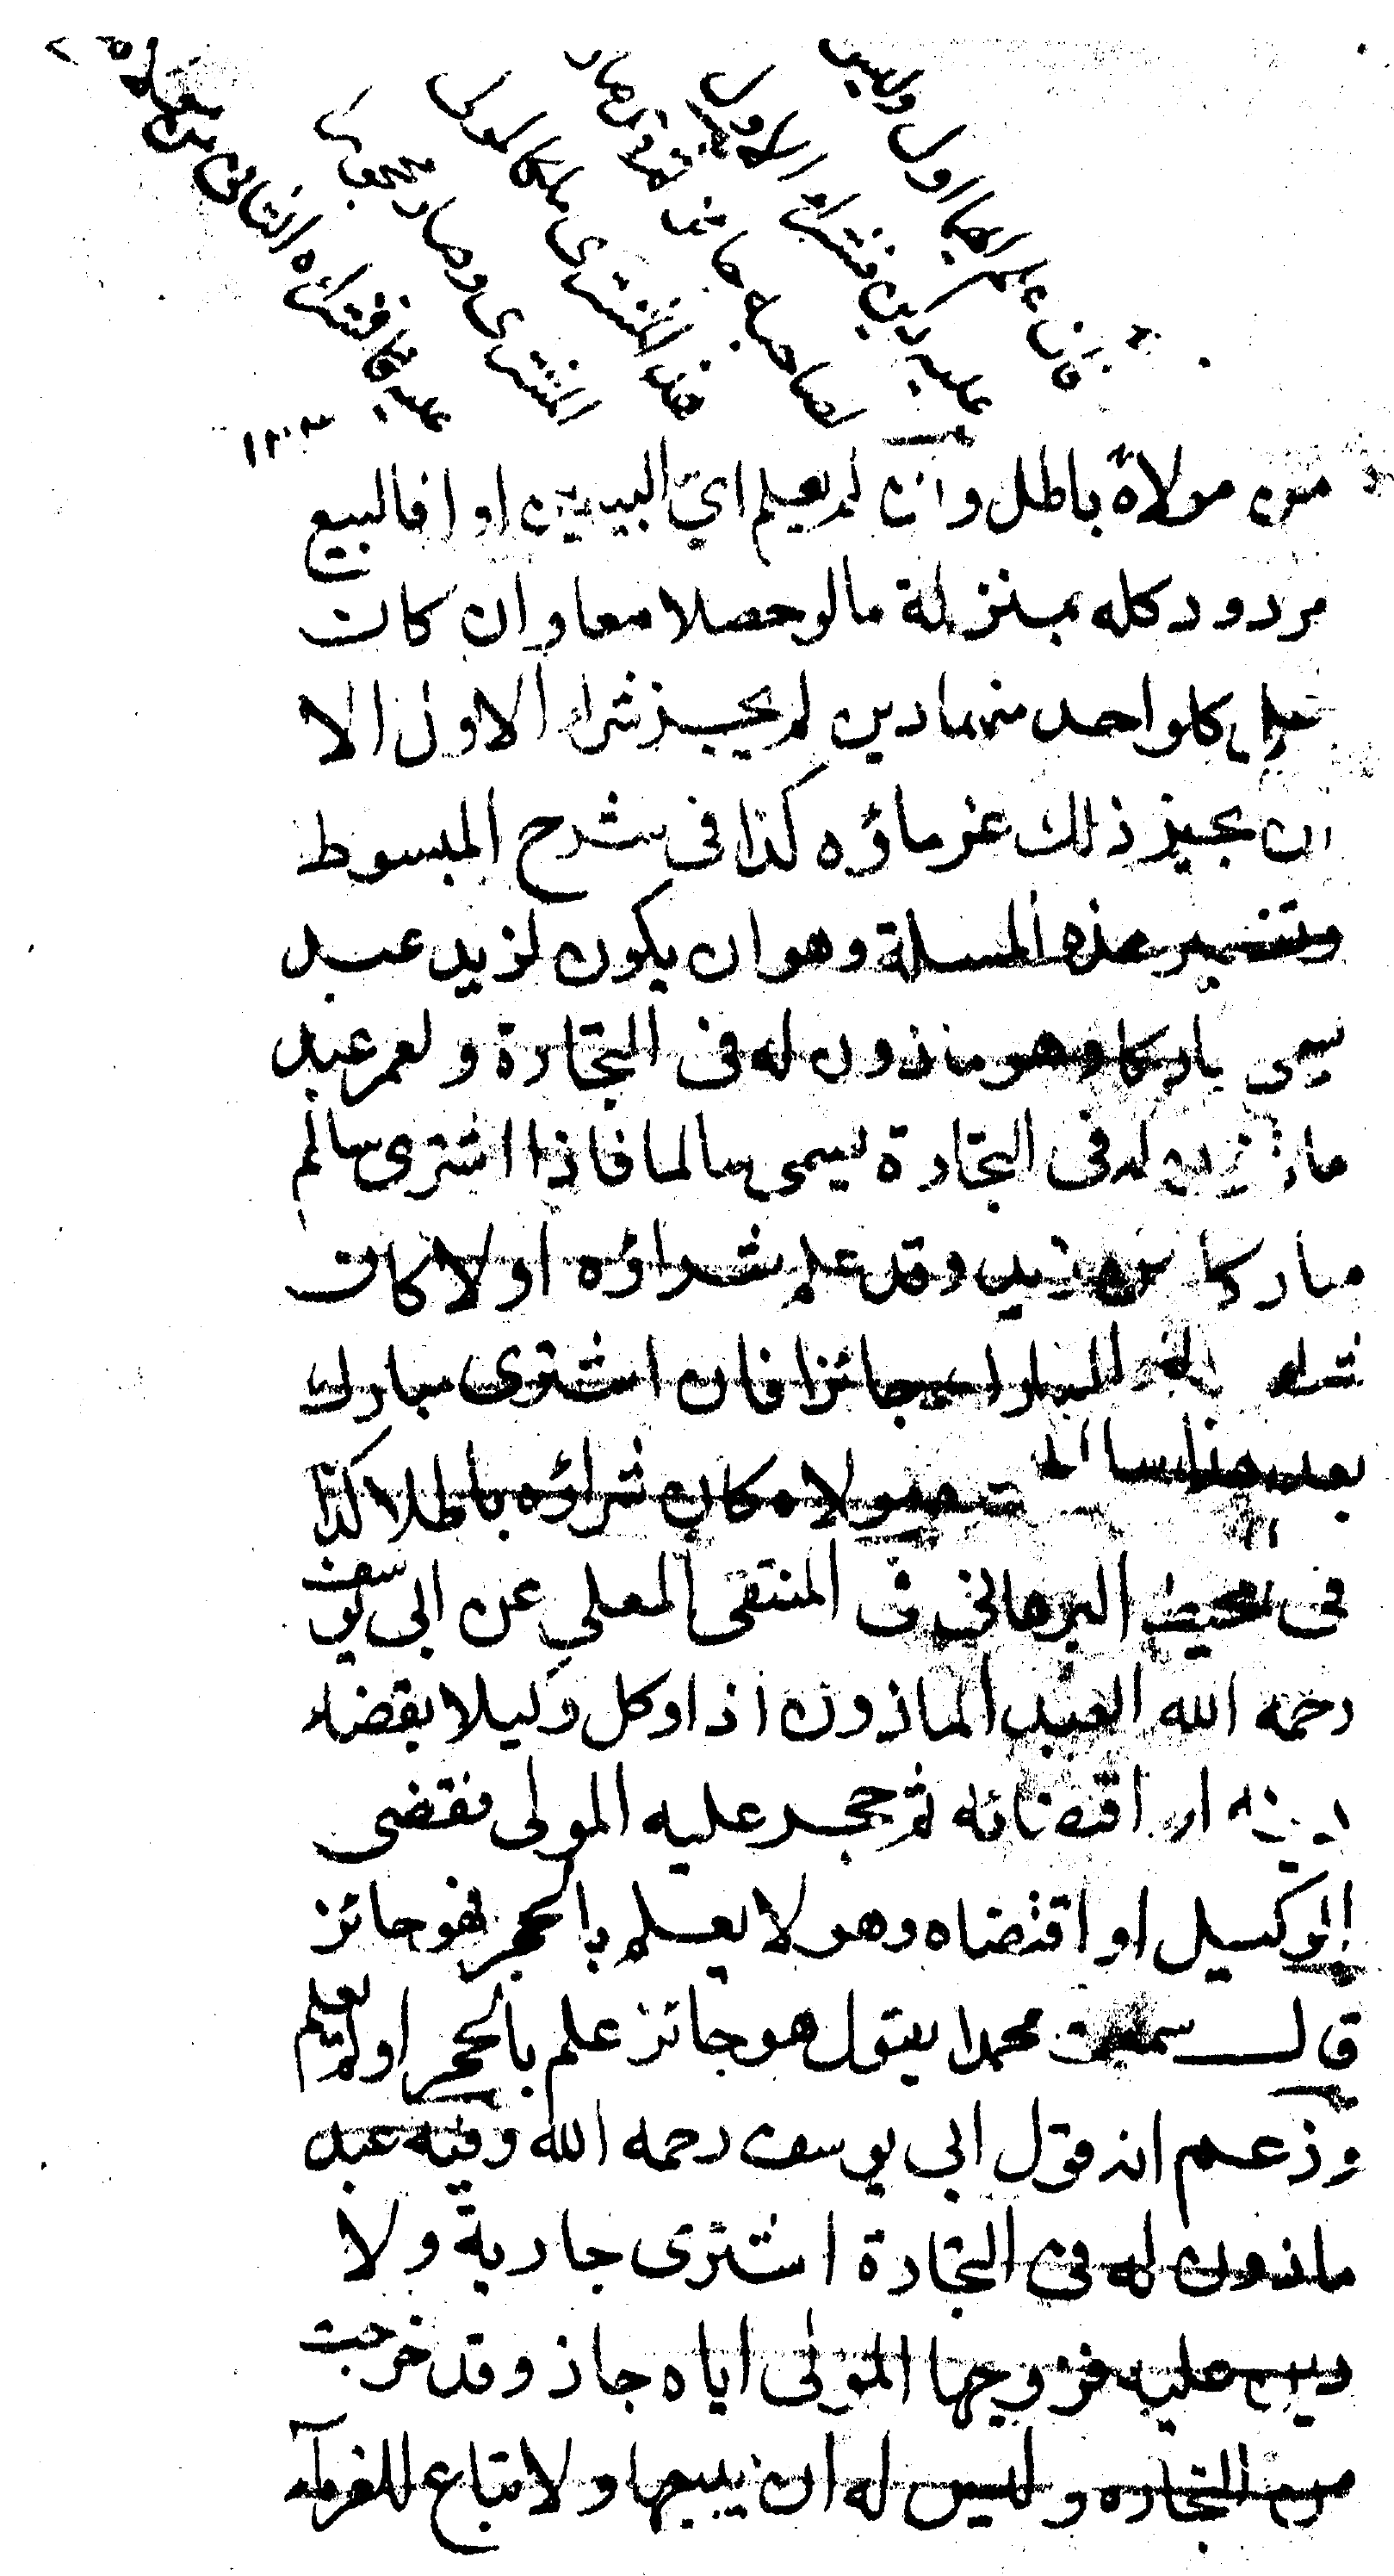 فان علم ايهما اول وليس
عليه دين فشراء الاول
لصاحبه جائز
هذا المشترى ملكا لمولى
المشترى وصار محجورا
من مولاه باطل وان لم يعلم اي البيعين اولا فالبيع
مردود كله بمنزلة ما لو حصلا معا وان كان
على كل واحد منهما دين لم يجز شراء الاول الا
ان يجيز ذلك غرماؤه كذا فى شرح المبسوط
وتفسير هذه المسلة وهو ان يكون لزيد عبد
يسمى باركا وهو ماذون له فى التجارة ولعمر عبد
ماذون له فى التجارة يسمى سالما فاذا اشترى سالم
مباركا من زيد وقد علم شراؤه اولا كان
شراء جائزا فان اشترى مبارك
بعد هذا سالما من مولاه كان شراؤه باطلا كذا
فى المحيط البرهانى فى المنتقى المعلى عن ابى يوسف
رحمه الله العبد الماذون اذا وكل وكيلا بقضاء
دينه او اقتضائه ثم حجر عليه المولى فقضى
الوكيل او اقتضاه وهو لا يعلم بالحجر فهو جائز
قال سمعت محمدا يقول هو جائز علم بالحجر او لم يعلم
وزعم انه قول ابى يوسف رحمه الله وفيه عبد
ماذون له فى التجارة اشترى جارية ولا
دين عليه فزوجها المولى اياه جاز وقد خرجت
من التجاره وليس له ان يبيعها ولا تباع للغرماء